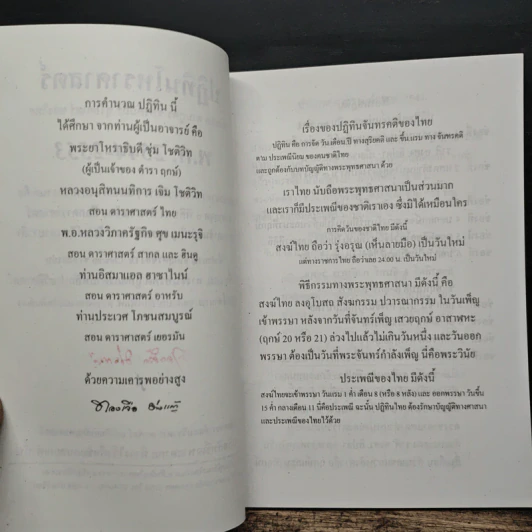 การคำนวณ ปฏิทิน นี้
ได้ศึกษา จากท่านผู้เป็นอาจารย์ คือ
พระยาโหราธิบดี ชุ่ม โชติวิท
(ผู้เป็นเจ้าของ ตำรา ฤกษ์)
หลวงอนุสิทนนทิการ เจิม โชติวิท
สอน ดาราศาสตร์ ไทย
พ.อ.หลวงวิภาครัฐกิจ ศุข เมนะรุจิ
สอน ดาราศาสตร์ สากล และ ฮินดู
ท่านอิสมาแอล ฮาซาไนน์
สอน ดาราศาสตร์ อาหรับ
ท่านประเวศ โภชนสมบูรณ์
สอน ดาราศาสตร์ เยอรมัน
ด้วยความเคารูพอย่างสูง
เรื่องของปฏิทินจันทรคติของไทย
ปฏิทิน คือ การจัด วัน เดือน ปี ทางสุริยคติ และ ขึ้น แรม ทาง จันทรคติ
ตาม ประเพณีนิยม ของคนชาติไทย
และถูกต้องกับบทบัญญัติทางพระพุทธศาสนา ด้วย
เราไทย นับถือพระพุทธศาสนาเป็นส่วนมาก
และเราก็มีประเพณีของชาติเราเอง ซึ่งมิได้เหมือนใคร
การคิดวันของชาติไทย มีดังนี้
สงฆ์ไทย ถือว่า รุ่งอรุณ (เห็นลายมือ) เป็นวันใหม่
แต่ทางราชการไทย ถือว่าเลย 24.00 น. เป็นวันใหม่
พิธีกรรมทางพระพุทธศาสนา มีดังนี้ คือ
สงฆ์ไทย ลงอุโบสถ สังฆกรรม ปวารณากรรม ในวันเพ็ญ
เข้าพรรษา หลังจากวันที่จันทร์เพ็ญ เสวยฤกษ์ อาสาฬหะ
(ฤกษ์ 20 หรือ 21) ล่วงไปแล้วไม่เกินวันหนึ่ง และ วันออก
พรรษา ต้องเป็นวันที่พระจันทร์กำลังเพ็ญ นี่คือพระวินัย
ประเพณีของไทย มีดังนี้
สงฆ์ไทยจะเข้าพรรษา วันแรม 1 ค่ำ เดือน 8 (หรือ 8 หลัง) และ ออกพรรษา วันขึ้น
15 ค่ำ กลางเดือน 11 นี่คือประเพณี ฉะนั้น ปฏิทินไทย ต้องรักษาบัญญัติทางศาสนา
และประเพณีของไทยไว้ด้วย